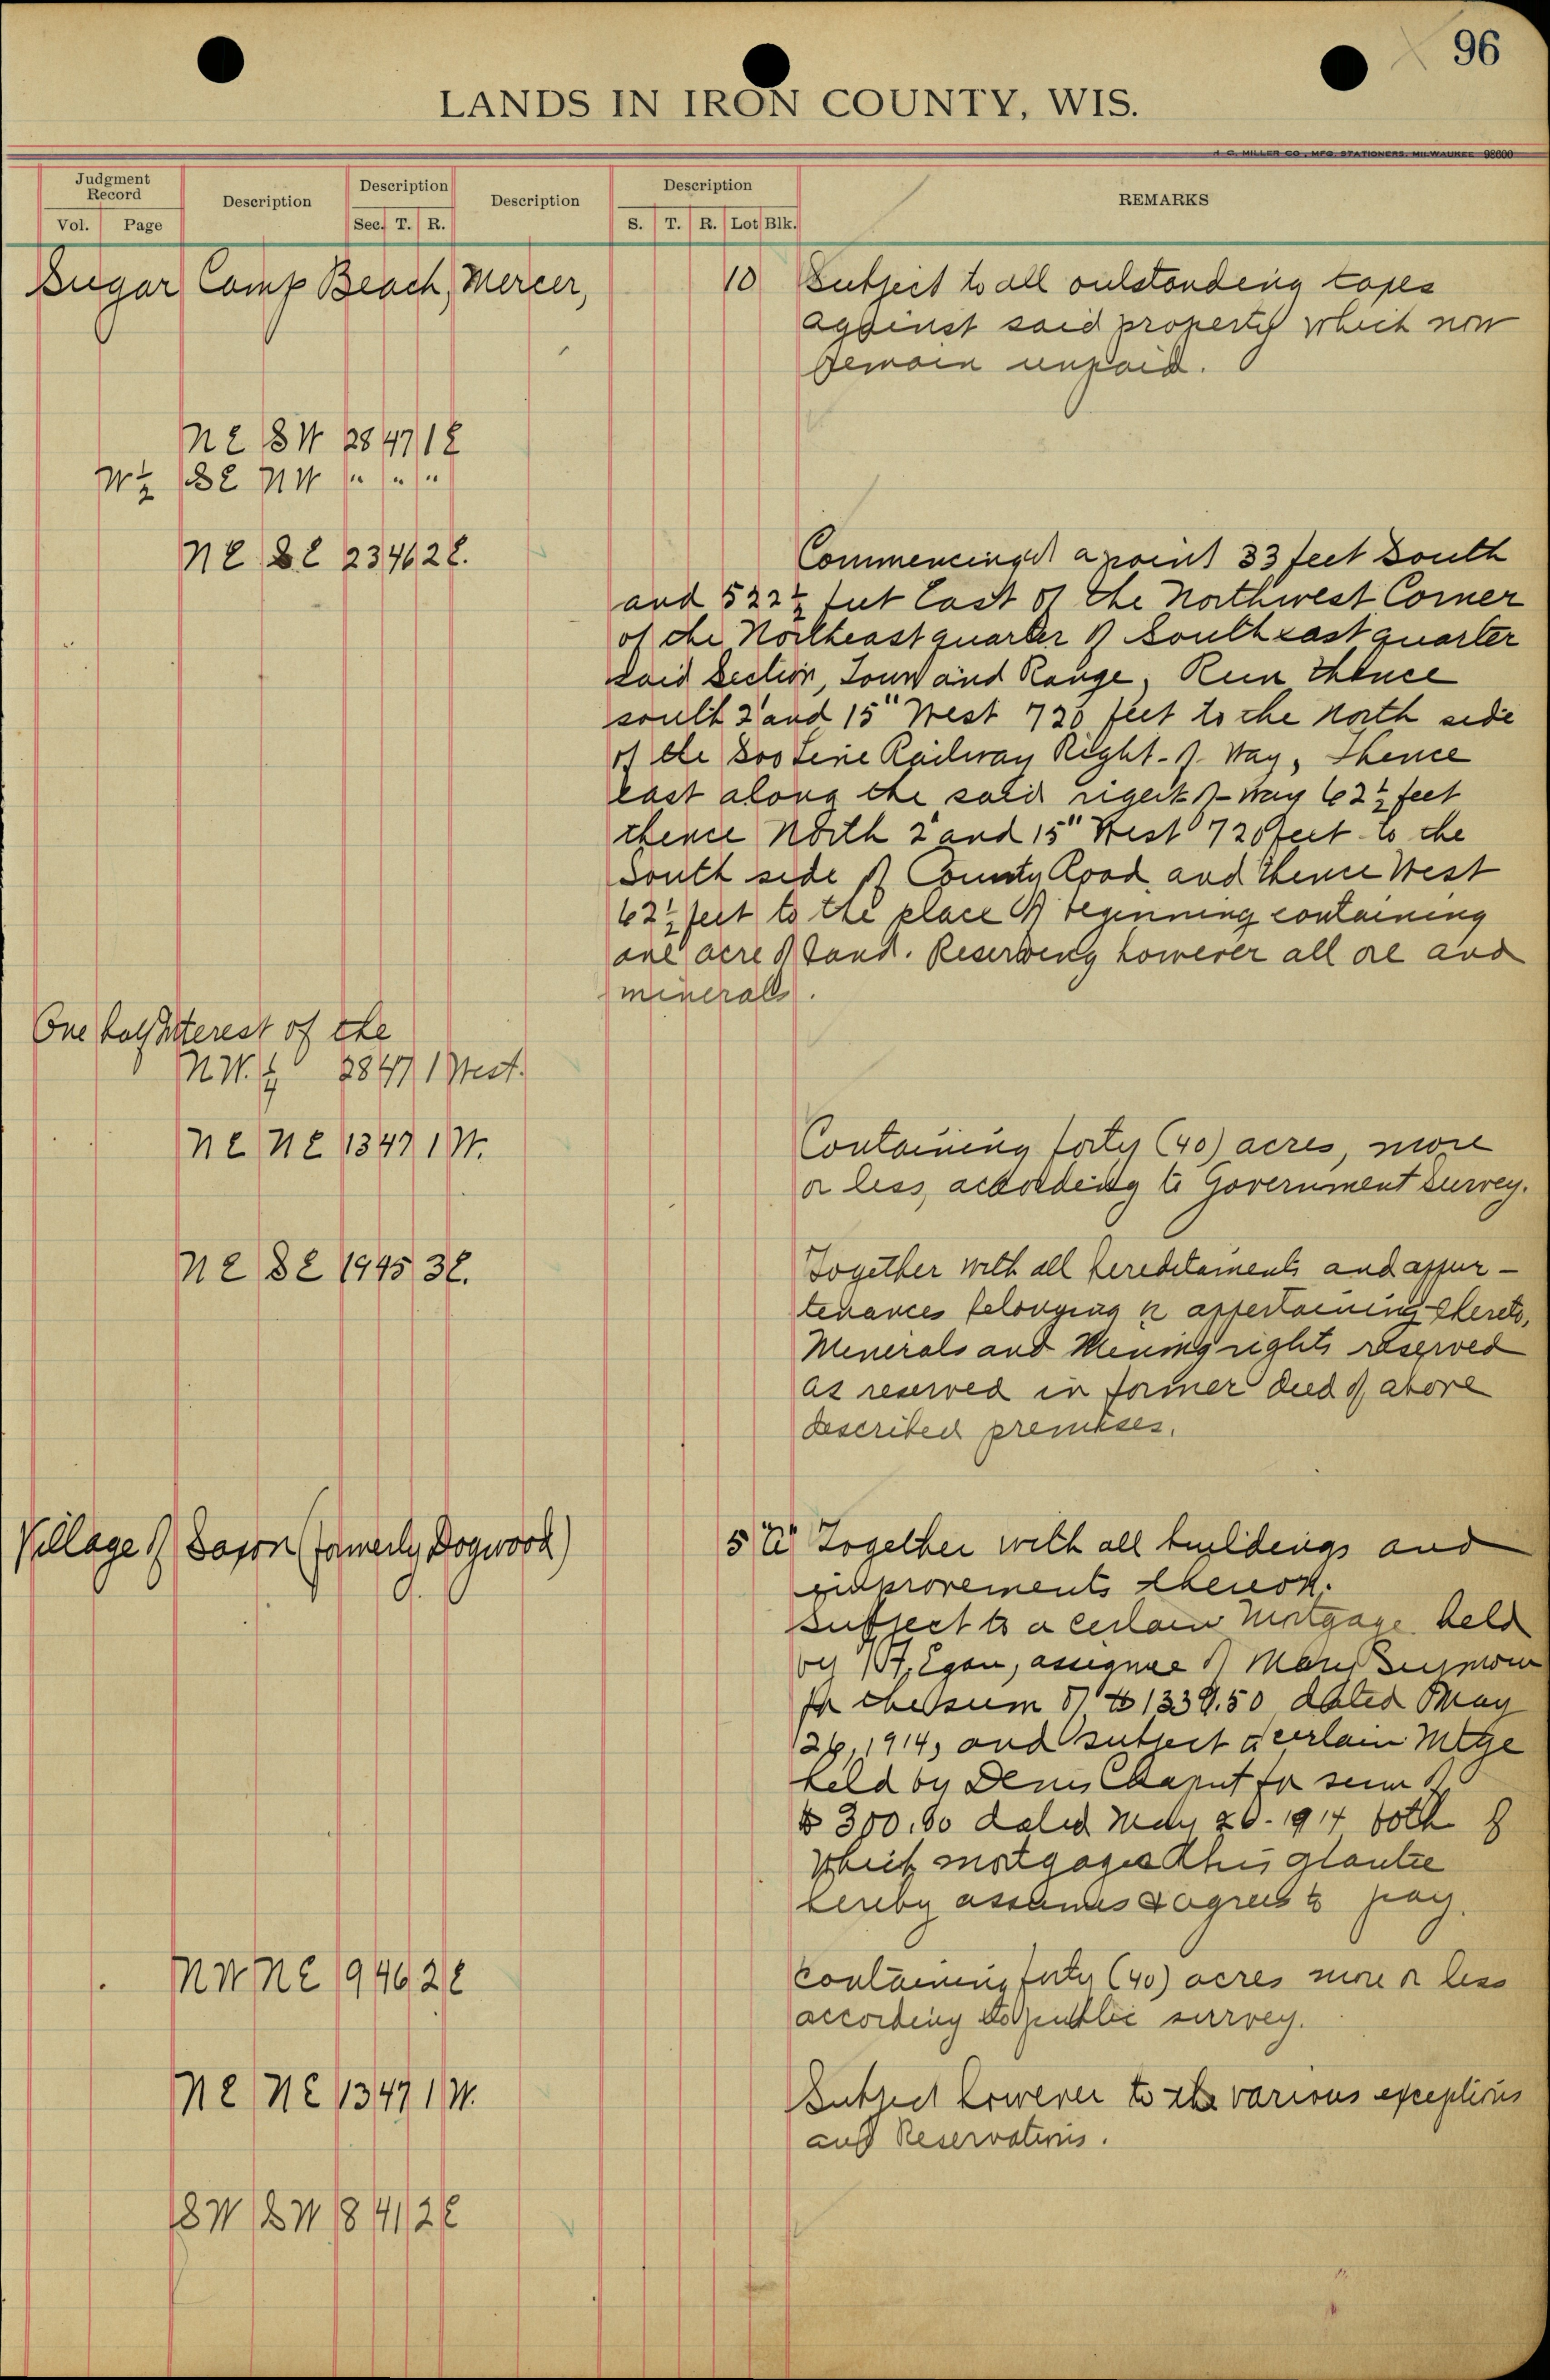 96
LANDS IN IRON COUNTY, WIS.
H. C. MILLER CO., MFG. STATIONERS, MILWAUKEE 98600
Judgment Record
Vol. Page
Description
Description
Sec. T. R.
Description
Description
S. T. R. Lot Blk.
REMARKS
Sugar Camp Beach, Mercer, 10 Subject to all outstanding taxes
against said property which now
remain unpaid.
NE SW 28 47 1 E
W½ SE NW " " "
NE SE 23 46 2 E. Commencing at a point 33 feet South
and 522½ feet East of the Northwest Corner
of the Northeast quarter of Southeast quarter
said Section, Town and Range, Run thence
south 2' and 15" West 720 feet to the North side
of the Soo Line Railway Right-of-Way, thence
east along the said right of-way 62½ feet
thence North 2' and 15" West 720 feet to the
South side of County Road and thence West
62½ feet to the place of beginning containing
one acre of land. Reserving however all ore and
minerals.
One half interest of the
N.W.¼ 28 47 1 West.
NE NE 13 47 1 W. Containing forty (40) acres, more
or less, according to Government Survey.
NE SE 19 45 3 E. Together with all hereditaments and appur-
tenances belonging or appertaining thereto,
Minerals and Mining rights reserved
as reserved in former deed of above
described premises.
Village of Saxon (formerly Dogwood) 5 "A" Together with all buildings and
improvements thereon.
Subject to a certain Mortgage held
by Egan, assignee of Mary Seymour
for the sum of $1339.50 dated May
26, 1914, and subject a certain Mtge
held by Denis Chaput for sum of
$300.00 dated May 20-1914 both of
which mortgages this grantee
hereby assumes & agrees to pay.
NW NE 9 46 2 E Containing forty (40) acres more or less
according to public survey.
NE NE 13 47 1 W. Subject however to the various exceptions
and Reservations.
SW SW 8 41 2 E